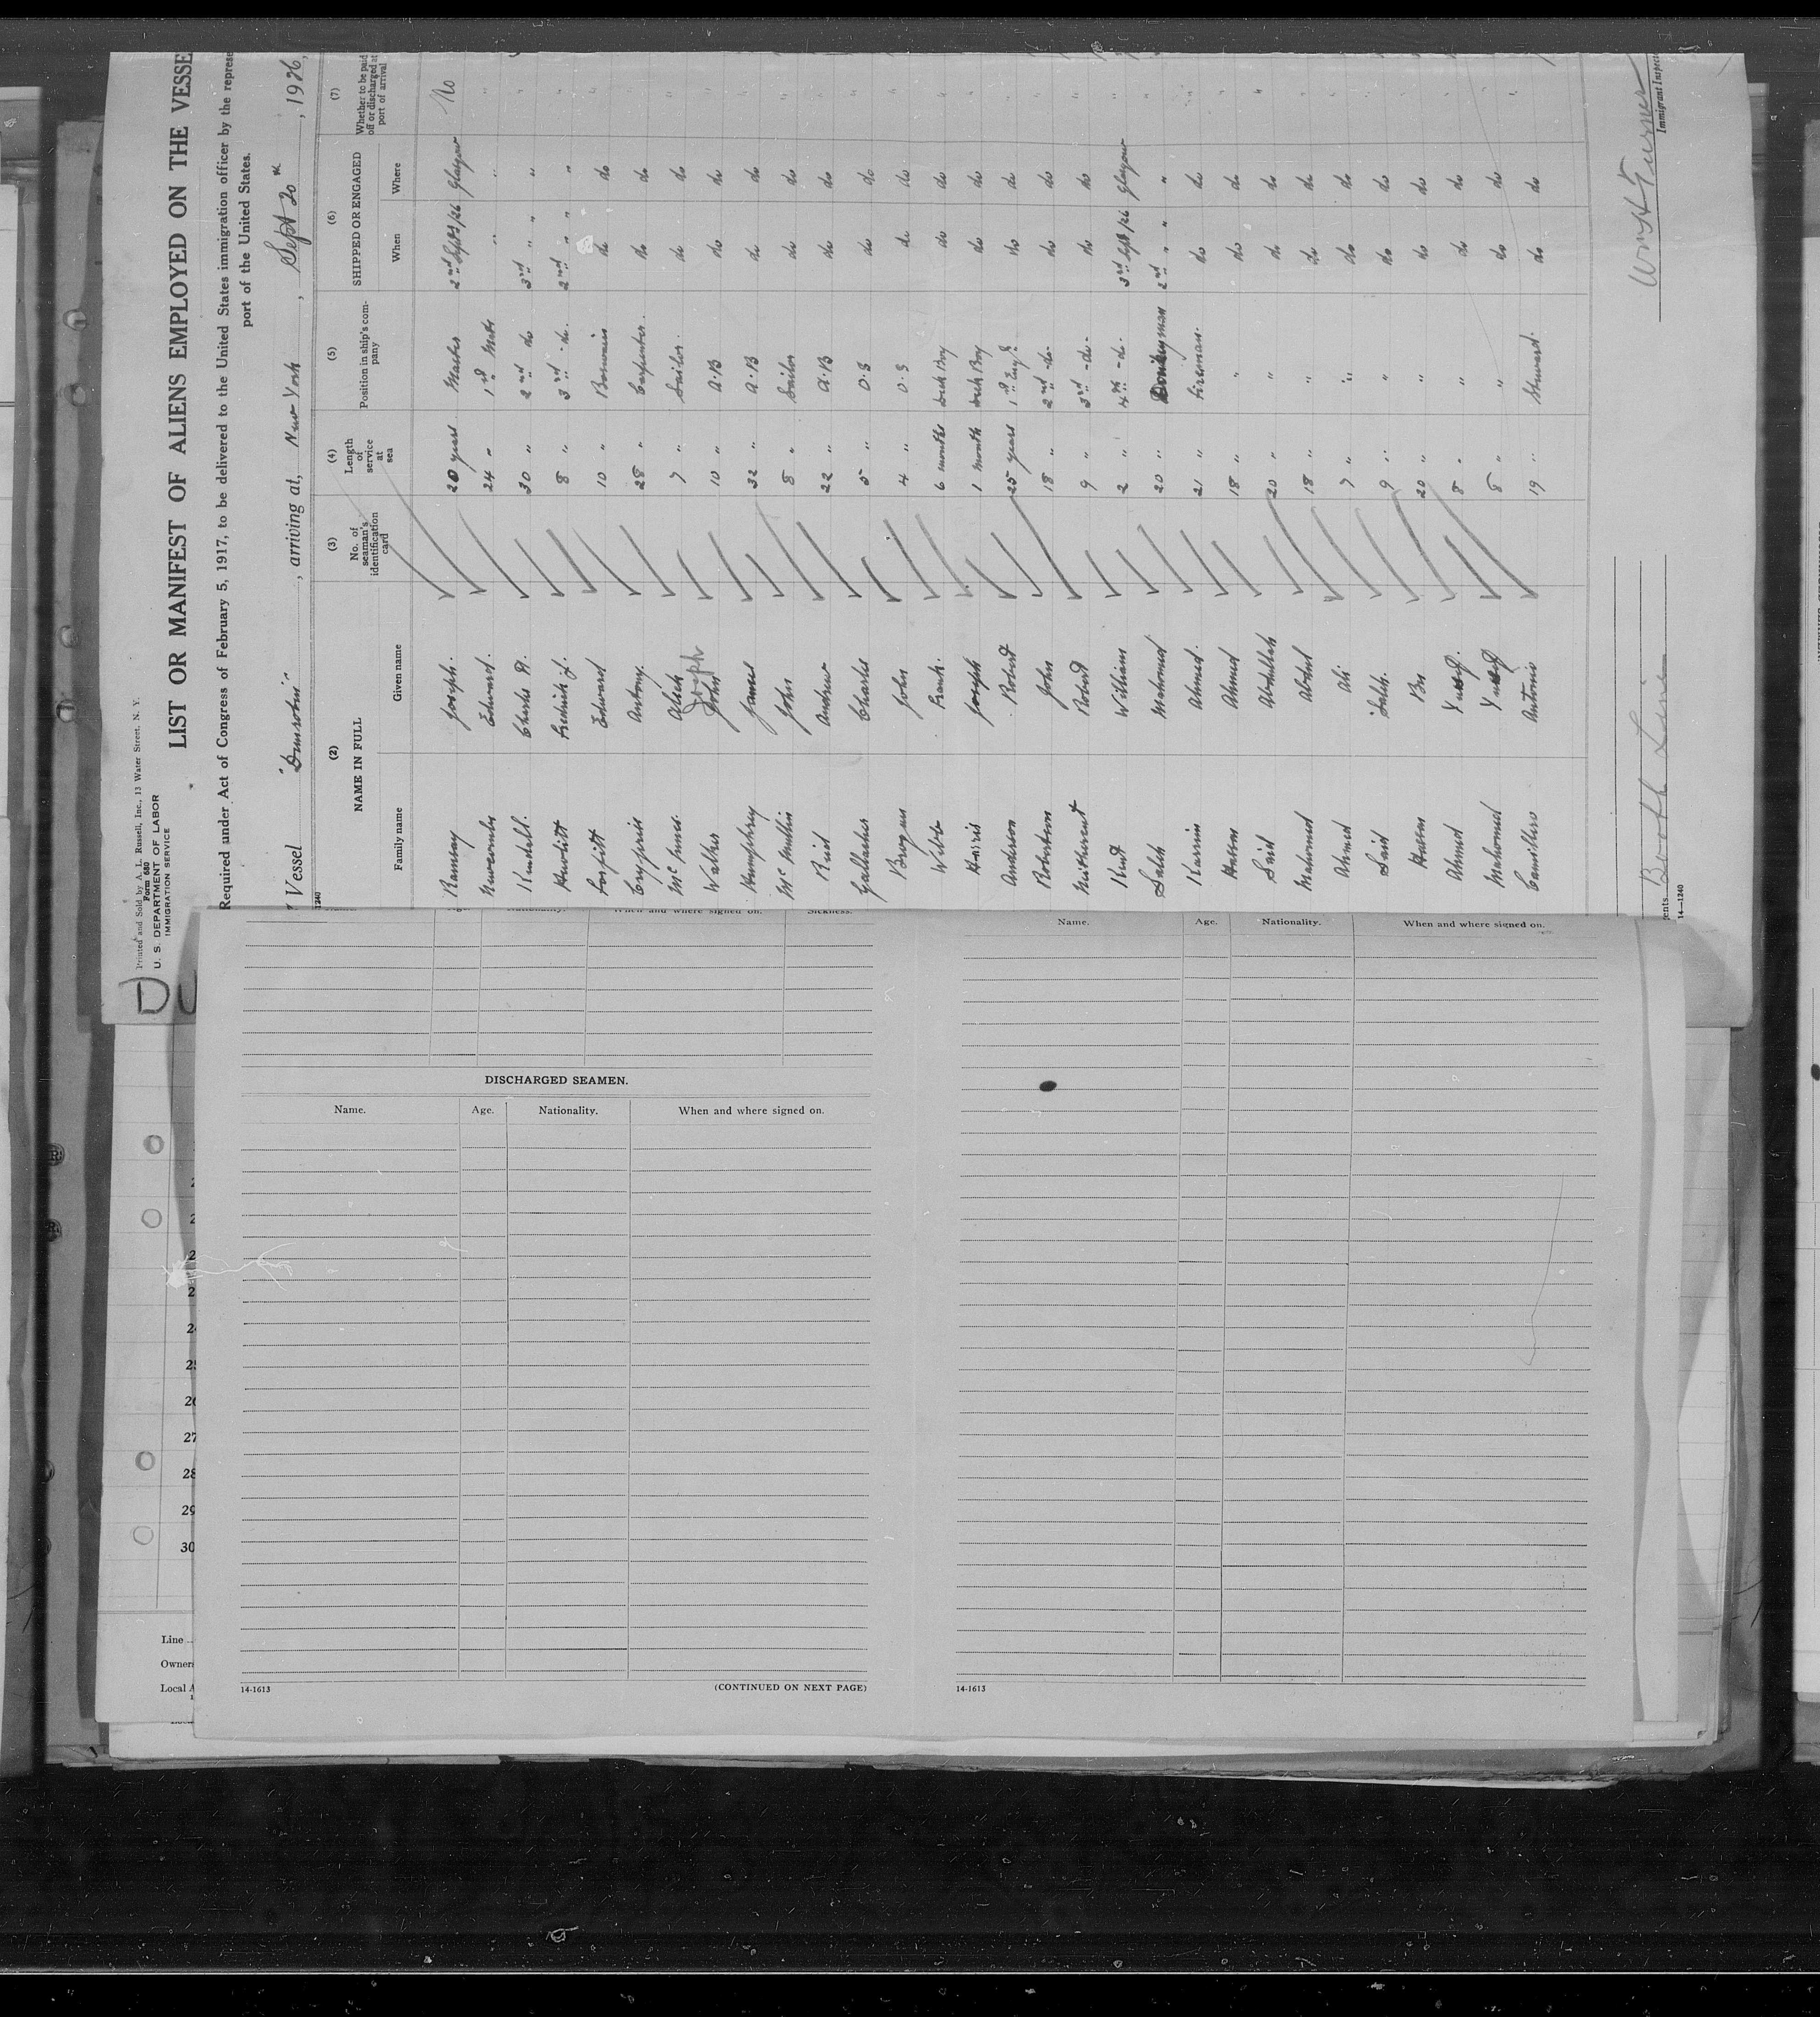 Printed and Sold by A. L. Russell, Inc., 13 Water Street, N. Y.
Form 680
U. S. DEPARTMENT OF LABOR
IMMIGRATION SERVICE
DU
LIST OR MANIFEST OF ALIENS EMPLOYED ON THE VESSE
Required under Act of Congress of February 5, 1917, to be delivered to the United States immigration officer by the represe
port of the United States.
Vessel , arriving at, New York , Sept 20th , 1926,
1240
(2) (3) (4) (5) (6) (7)
NAME IN FULL No. of seaman's identification card Length of service at sea Position in ship's company SHIPPED OR ENGAGED Whether to be paid off or discharged at port of arrival
Family name Given name When Where
Ramsay Joseph. 20 years Master 2nd Sept/26 Glasgow No
Newcombe Edward. 24 " 1st Mate " " "
Charles 30 " 2nd do 3rd " " " "
8 " 3rd - do. 2nd " " " "
Edward 10 " Boswain do do "
Antony. 28 " Carpenter. do do "
McInnes. 7 " Sailor. do do "
Walker John Joseph 10 " A.B do do "
Humphrey James 32 " A.B do do "
McMullin John 8 " Sailor do do "
Reid Andrew 22 " A.B do do "
Gallacher Charles 5 " O.S do do "
Brogan John 4 " O.S do do "
Webb Frank. 6 months Deck Boy do do "
Harris Joseph 1 month Deck Boy do do "
Anderson Robert 25 years 1st Eng. do do "
Robertson John 18 " 2nd -do- do do "
Robert 9 " 3rd -do- do do "
William 2 " 4th -do. 3rd Sept/26 Glasgow "
Saleh Mahomed 20 " Donkeyman 2nd " " " "
Karrim Ahmed. 21 " Fireman. do do "
Hassan Ahmed 18 " " do do "
Said Abdullah 20 " " do do "
Mahomed Abdul 18 " " do do "
Ahmed Ali 7 " " do do "
Said Saleh. 9 " " do do "
Hassan 20 " " do do "
Ahmed 8 " " do do "
Mahomed 8 " " do do "
Camilleri Antonio 19 " Steward. do do "
Booth Line
ents
14-1240
Immigrant Inspec
Name. Age. Nationality. When and where signed on. Sickness.
DISCHARGED SEAMEN.
Name. Age. Nationality. When and where signed on.
14-1613 (CONTINUED ON NEXT PAGE)
Name. Age. Nationality. When and where signed on.
14-1613
2
2
2
24
25
26
27
28
29
30
Line
Owner
Local A